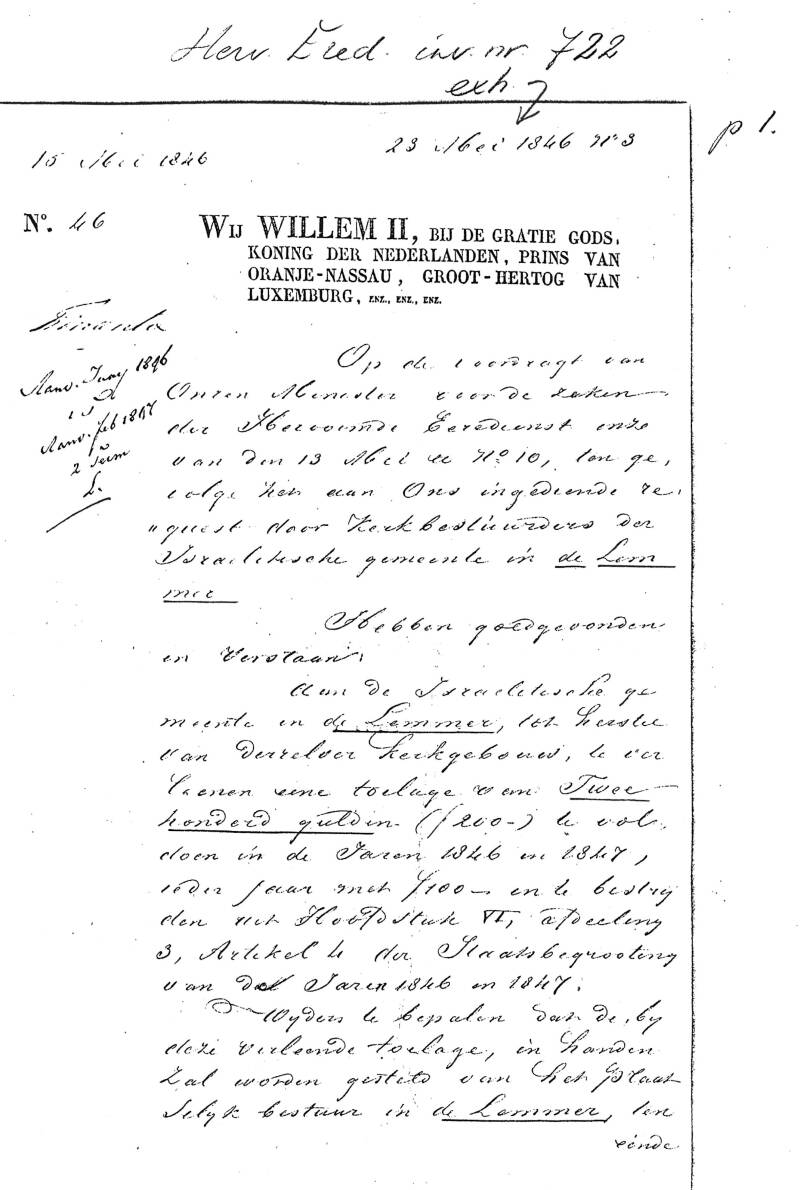 Herv. Ered. inv. nr. 722
exh.
p 1.
23 Mei 1846 No 3
15 Mei 1846
No. 46
WIJ WILLEM II, BIJ DE GRATIE GODS,
KONING DER NEDERLANDEN, PRINS VAN
ORANJE-NASSAU, GROOT-HERTOG VAN
LUXEMBURG, ENZ., ENZ., ENZ.
Aanv. Juny 1846
Aanv. feb 1847
2 Term
Op de voordragt van
Onzen Minister voor de zaken
der Hervormde Eeredienst enz
van den 13 Mei No 10, ten ge,
volge het aan Ons ingediende re,
"quest door Kerkbestuurders der
Israelitische gemeente in de Lem
mer
Hebben goedgevonden
en Verstaan:
Aan de Israelitische ge
meente in de Lemmer, tot herstel
van derzelver Kerkgebouw, te ver
leenen eene toelage van Twee
honderd gulden (f200-) te vol,
doen in de Jaren 1846 en 1847,
ieder jaar met f100- en te bestrij
den uit Hoofdstuk VI, afdeeling
3, Artikel 4 der Staatsbegrooting
van de Jaren 1846 en 1847;
Wyders te bepalen dan de, by
deze verleende toelage, in handen
zal worden gesteld van het plaat
selyk bestuur in de Lemmer, ten
einde